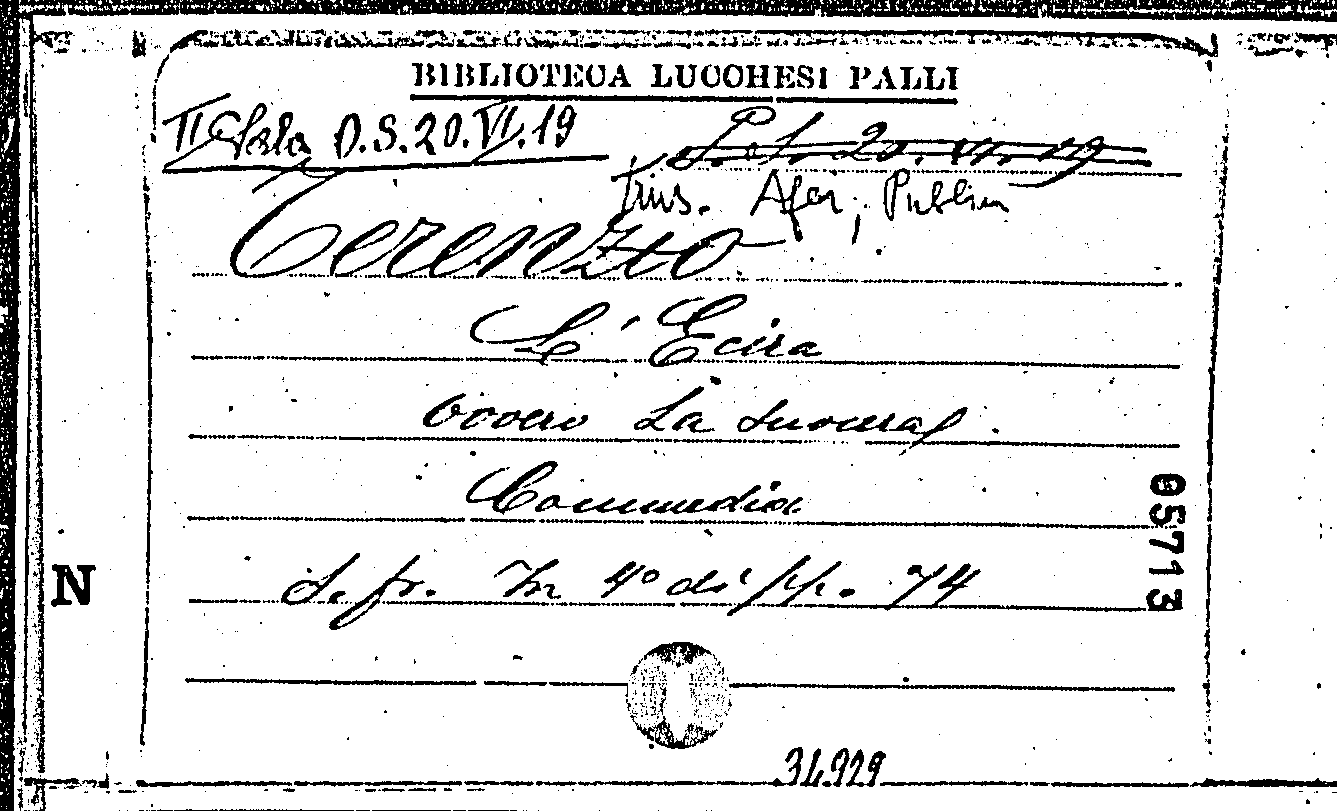 BIBLIOTECA LUCCHESI PALLI
II Sala D.S.20.VI.19
20. VI. 19
Afer, Publius
Terenzio
L'Ecira
ovvero La suocera
Commedia
S. fr. In 4° di pp. 74
05713
N
34929